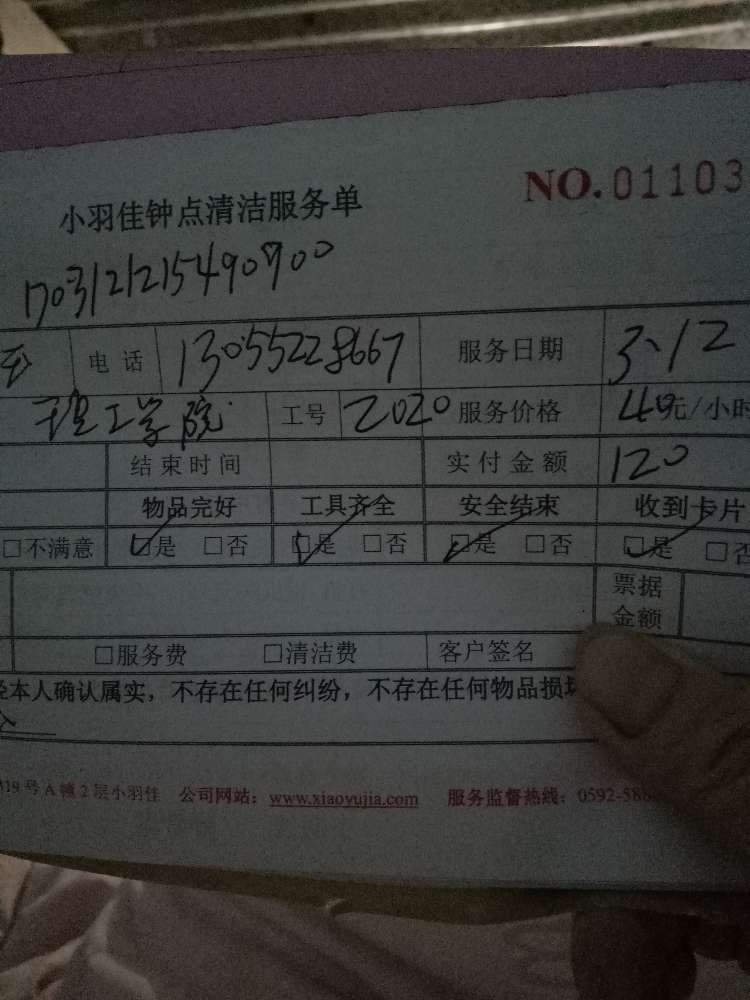 NO.01103
小羽佳钟点清洁服务单
1703121215490900
电话 13055228667 服务日期 3.12
理工学院 工号 2020 服务价格 40元/小时
结束时间 实付金额 120
物品完好 工具齐全 安全结束 收到卡片
□不满意 ☑是 □否 ☑是 □否 ☑是 □否 ☑是 □否
票据金额
□服务费 □清洁费 客户签名
本人确认属实，不存在任何纠纷，不存在任何物品损坏
19号A幢2层小羽佳 公司网站：www.xiaoyujia.com 服务监督热线：0592-588